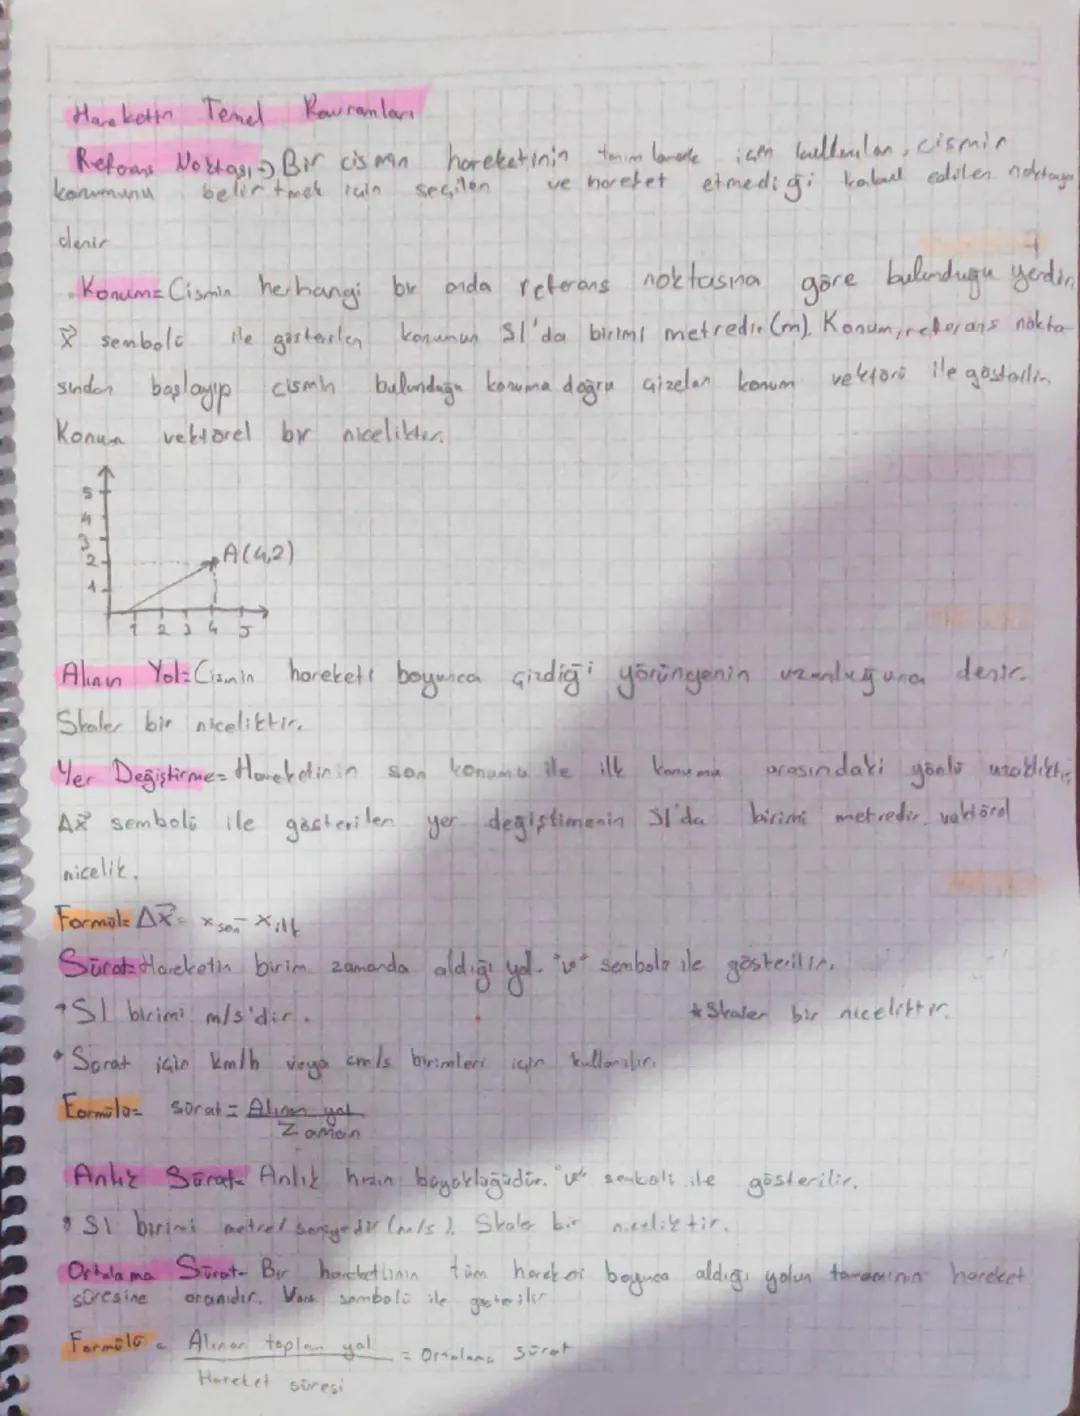 Hareketin Temel Kavramları
Referans Noktası → Bir cismin hareketinin tanımlamak için kullanılan, cismin
konumunu belirtmek için seçilen ve hareket etmediği kabul edilen noktaya
denir
Konum = Cismin herhangi bir anda referans noktasına göre bulunduğu yerdir.
x sembolü ile gösterilen konumun SI'da birimi metredir (m). Konum, referans nokta-
sından başlayıp cismin bulunduğu konuma doğru çizelen konum vektörü ile gösterilir.
Konum vektörel bir niceliktir.
5
4
3
2
1
A(4,2)
1 2 3 4 5
Alınan Yol = Cismin hareketi boyunca çizdiği yörüngenin uzunluğuna denir.
Skaler bir niceliktir.
Yer Değiştirme = Hareketinin son konumu ile ilk konumu arasındaki yönlü uzaklıktır.
Δx sembolü ile gösterilen yer değiştimenin SI'da birimi metredir. vektörel
nicelik.
Formül = Δx = x son - x ilk
Sürat = Hareketin birim zamanda aldığı yol. "v" sembolü ile gösterilir.
* SI birimi m/s'dir. * Skaler bir niceliktir.
* Sürat için km/h veya cm/s birimleri için kullanılır.
Formülü = sürat = Alınan yol
Zaman
Anlık Sürat = Anlık hızın büyüklüğüdür. "v" sembolü ile gösterilir.
* SI birimi metre/saniyedir (m/s). Skaler bir niceliktir.
Ortalama Sürat = Bir hareketlinin tüm hareketi boyunca aldığı yolun tamamının hareket
süresine oranıdır. Vort sembolü ile gösterilir
Formülü = Alınan toplam yol = Ortalama sürat
Hareket süresi